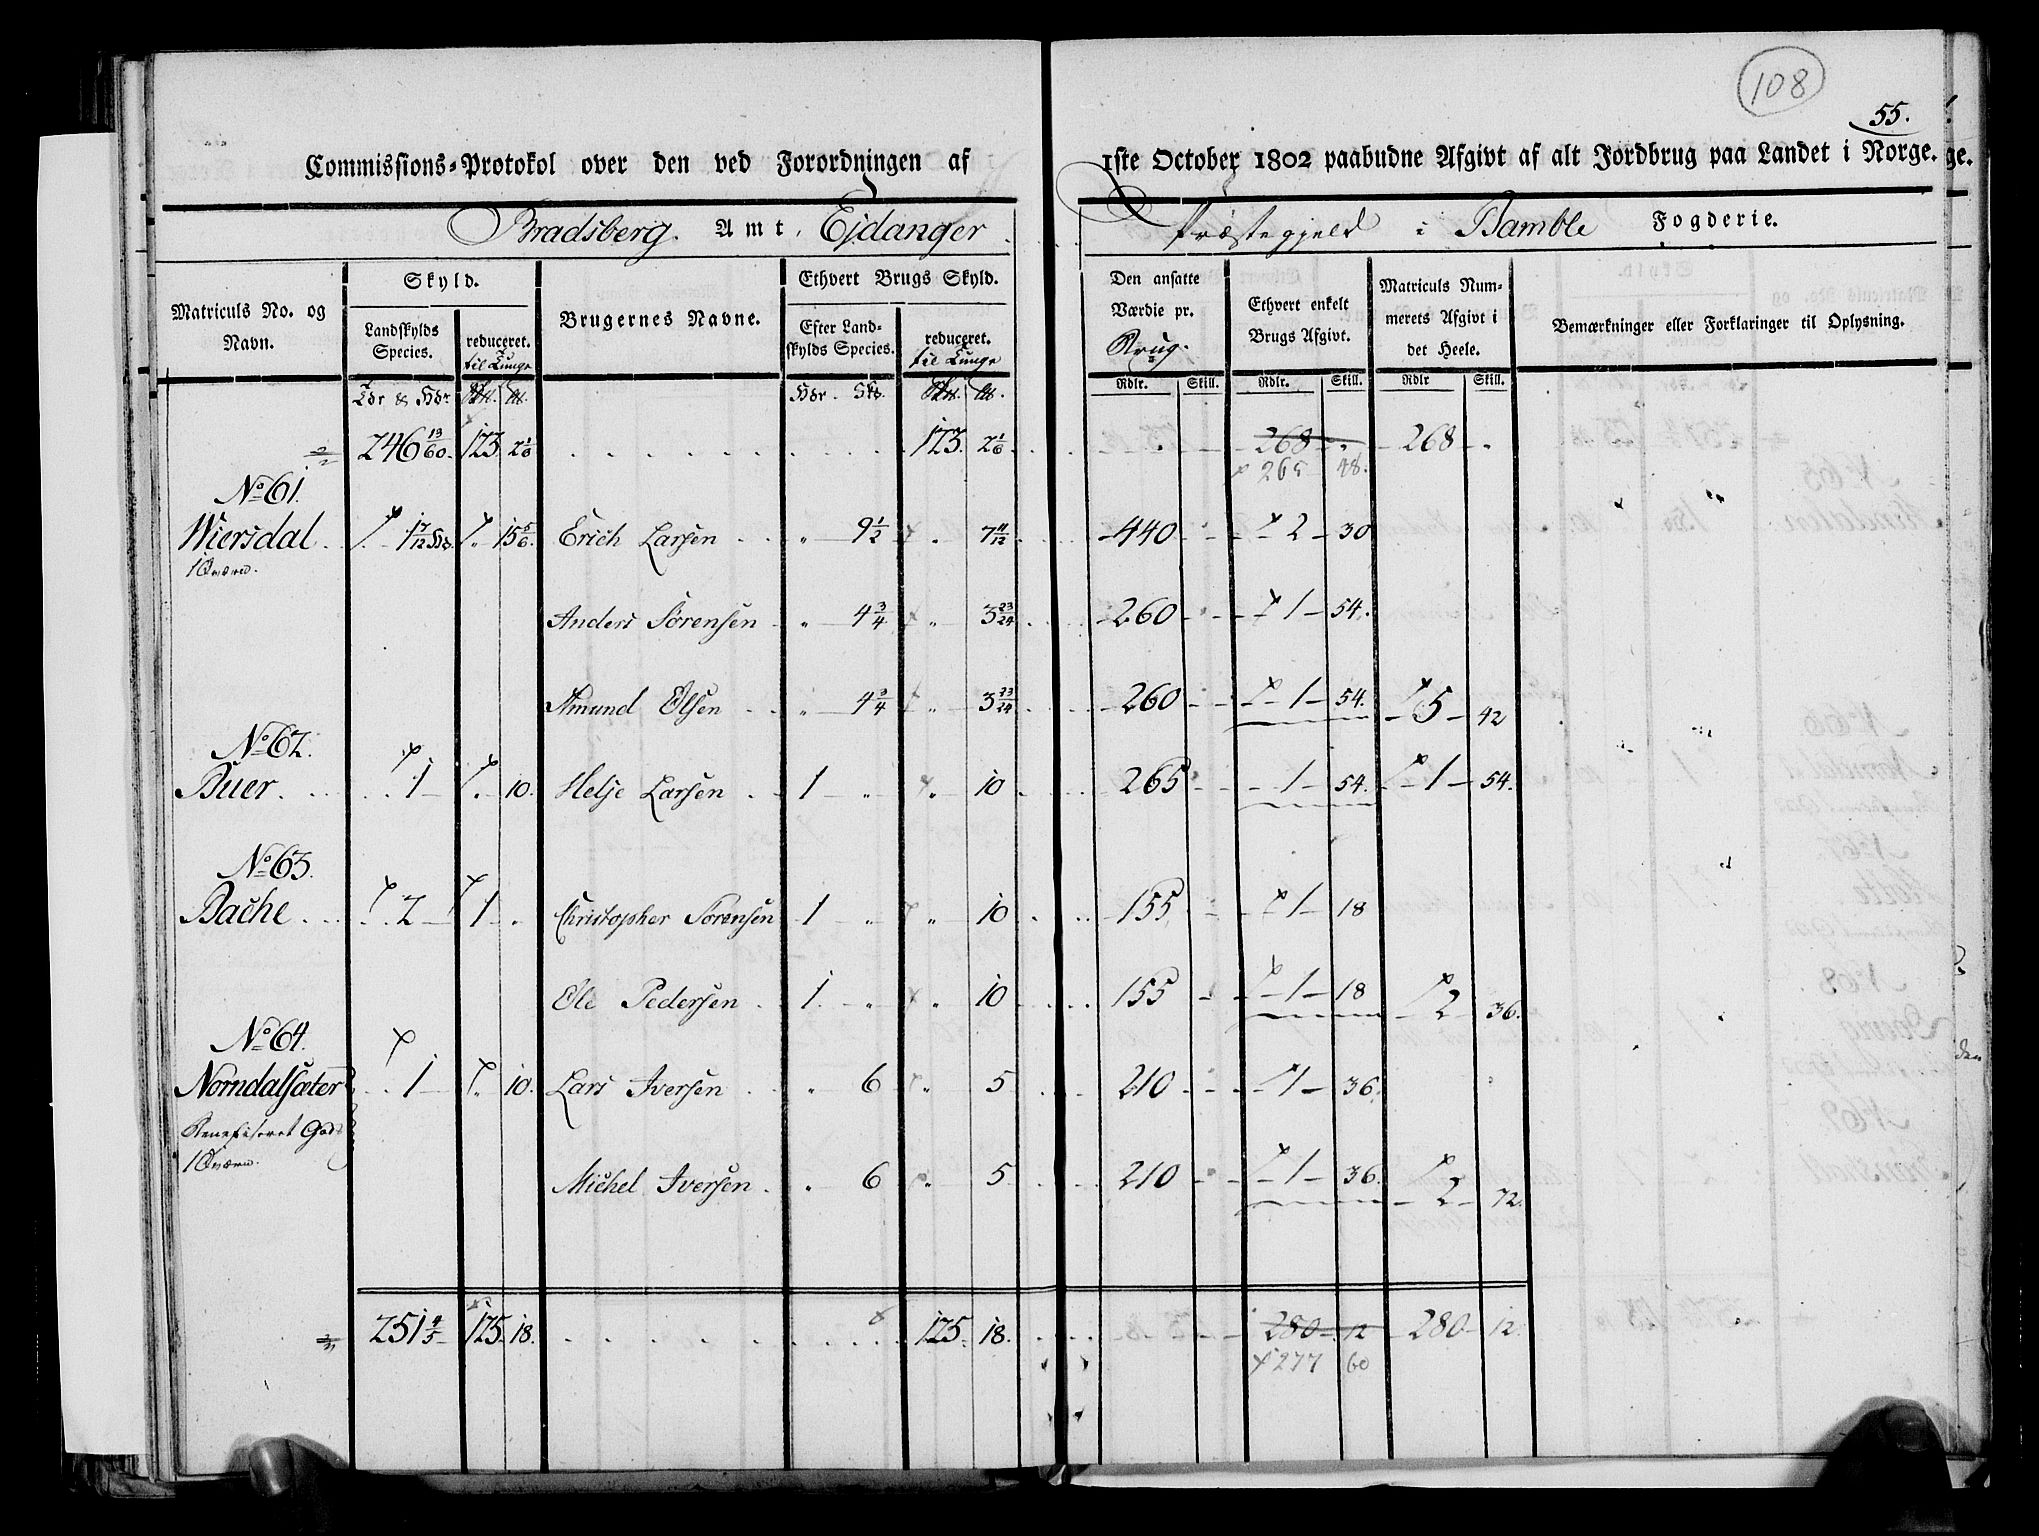 108
55.
Commissions-Protokol over den ved Forordningen af 1ste October 1802 paabudne Afgivt af alt Jordbrug paa Landet i Norge.
Bradsberg Amt, Ejdanger Præstegjeld i Bamble Fogderie.
Matriculs No. og Navn. Skyld. Brugernes Navne. Ethvert Brugs Skyld. Den ansatte Værdie pr. Brug. Ethvert enkelt Brugs Afgivt. Matriculs Nummerets Afgivt i det Heele. Bemærkninger eller Forklaringer til Oplysning.
Landskylds Species. reduceret. til Tunge Efter Landskylds Species. reduceret. til Tunge
Rdlr. Skill. Rdlr. Skill. Rdlr Skill.
246 13/60 123. 2 1/6 123. 2 1/6 268 268
265 48.
No 61.
Wiersdal 1 7/12 15 5/6 Erich Larsen 9 1/2 7 11/12 440 2 30
1 Qværn.
Anders Sörensen 4 3/4 3 23/24 260 1 54.
Amund Olsen 4 3/4 3 23/24 260 1 54. 5 42
No 62.
Buer 1 10. Helje Larsen 1 10 265 1 54. 1 54.
No 63.
Bache 2 1 Christopher Sörensen 1 10 155 1 18
Ole Pedersen 1 10 155 1 18 2 36.
No 64.
Norndalsæter 1 10. Lars Iversen 6 5 210 1 36.
Beneficeret Gods
1 Qværn.
Michel Iversen 6 5 210 1 36. 2 72.
251 4/5 125. 18. 125. 18. 280 12 280 12.
277 60